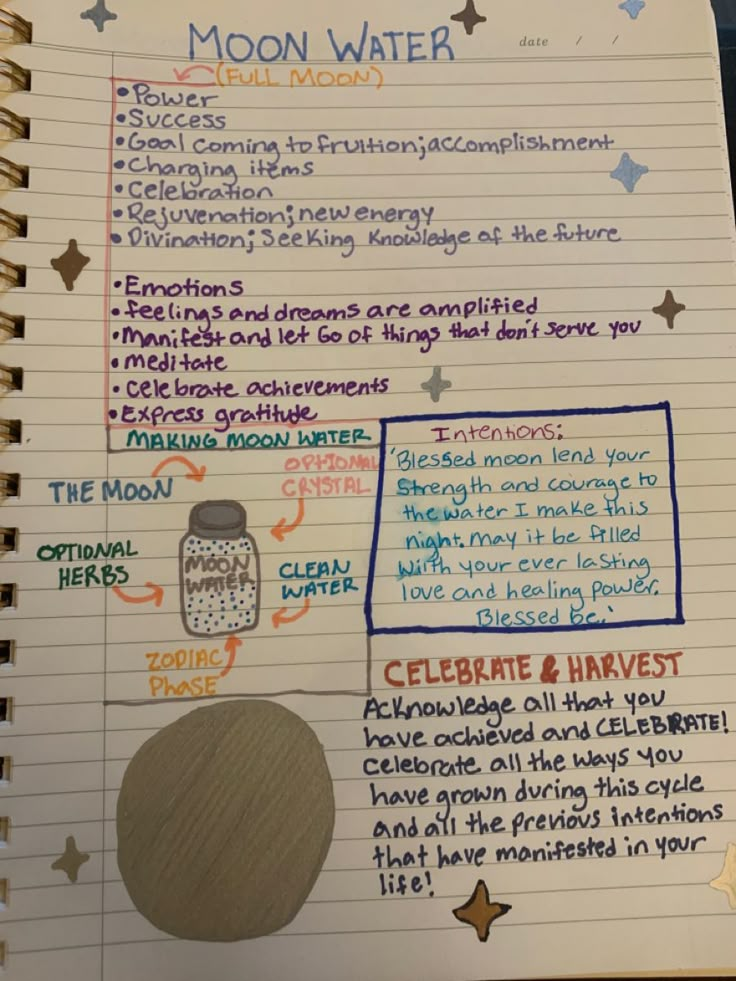 MOON WATER
date / /
(FULL MOON)
•Power
•Success
•Goal coming to fruition; accomplishment
•Charging items
•Celebration
•Rejuvenation; new energy
•Divination; Seeking Knowledge of the future
•Emotions
•feelings and dreams are amplified
•Manifest and let Go of things that don't serve you
•meditate
•celebrate achievements
•Express gratitude
MAKING MOON WATER
THE MOON
OPTIONAL
CRYSTAL
OPTIONAL
HERBS
MOON
WATER
CLEAN
WATER
ZODIAC
PHASE
Intentions:
'Blessed moon lend your
strength and courage to
the water I make this
night. may it be filled
wiith your ever lasting
love and healing power.
Blessed be.'
CELEBRATE & HARVEST
Acknowledge all that you
have achieved and CELEBRATE!
celebrate all the ways you
have grown during this cycle
and all the previous intentions
that have manifested in your
life!